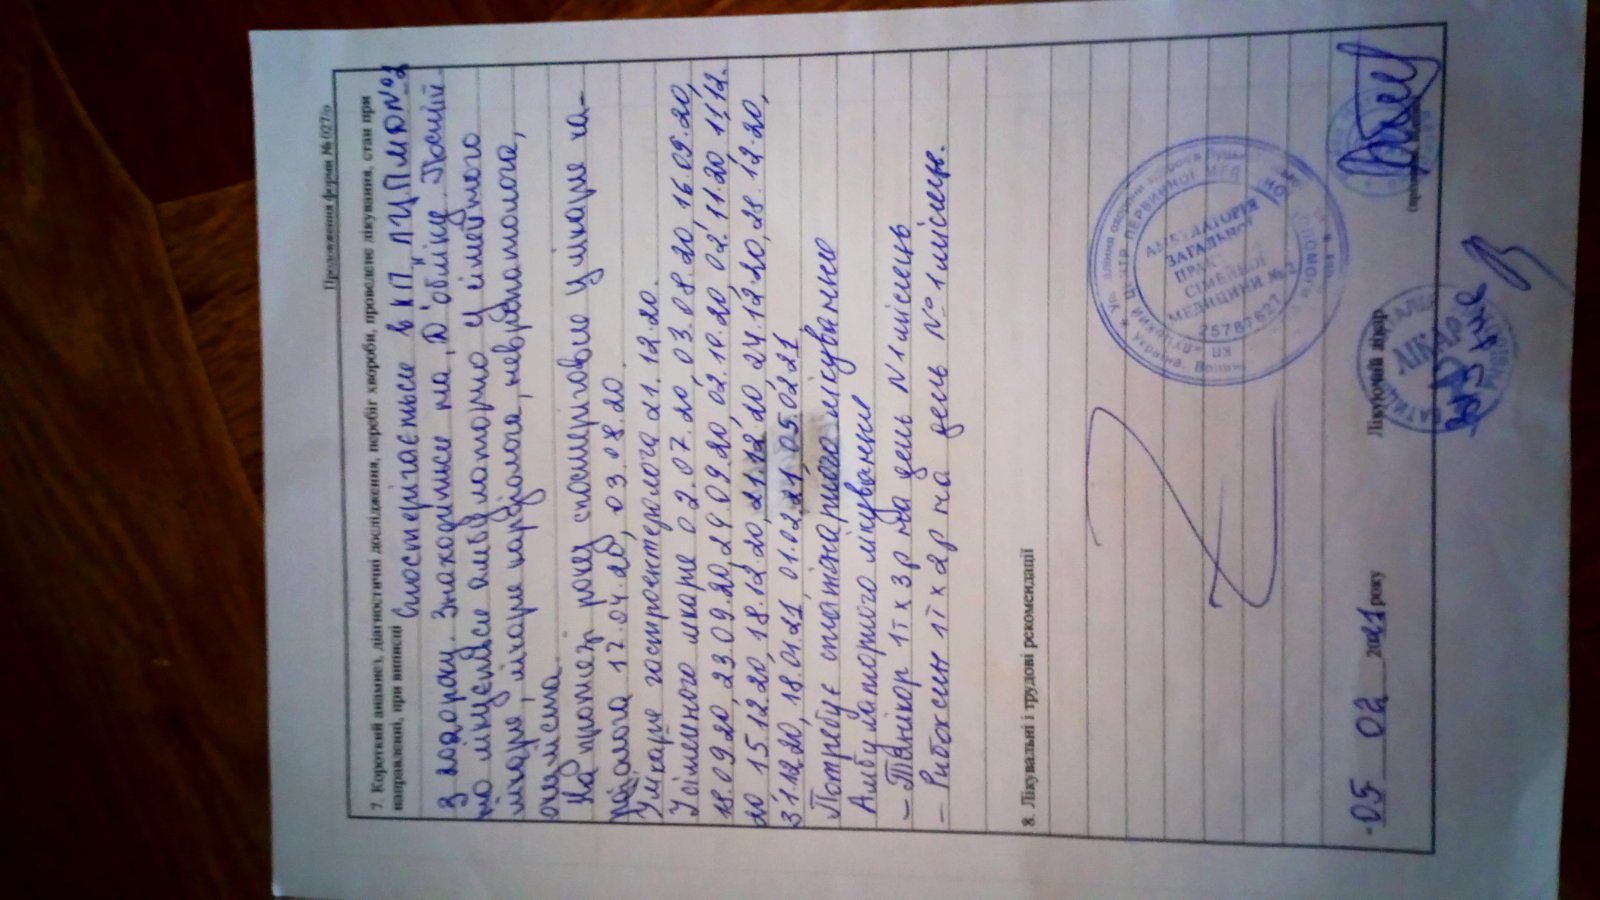 Продовження форми № 027/о
7. Короткий анамнез, діагностичні дослідження, перебіг хвороби, проведене лікування, стан при
направленні, при виписці Спостерігається в КП "ЛЦПМД №2
З 2020 року. Знаходилася на "Д" обліку. Постій
но лікується амбулаторно у сімейного
лікаря, лікаря кардіолога, невропатолога,
окуліста.
На протязі року спостерігався у лікаря ка-
рдіолога 17.04.20, 03.08.20.
У лікаря гастроентеролога 21.12.20.
У сімейного лікаря 02.07.20, 03.08.20 16.09.20,
18.09.20, 23.09.20, 29.09.20, 02.10.20, 02.11.20, 11.12.
20 15.12.20, 18.12.20, 21.12.20 24.12.20, 28.12.20,
31.12.20, 18.01.21, 01.02.21, 05.02.21
Потребує стаціонарного лікування
Амбулаторного лікування
– 1т х 3р на день N 1 місяць
– Рибоксин 1т х 2р на день №1 місяць.
8. Лікувальні і трудові рекомендації
АМБУЛАТОРІЯ
ЗАГАЛЬНОЇ
ПРАКТ
СІМЕЙНОЇ
МЕДИЦИНИ № 2
25787627
05 02 2021 року
Лікуючий лікар
ЛІКАР